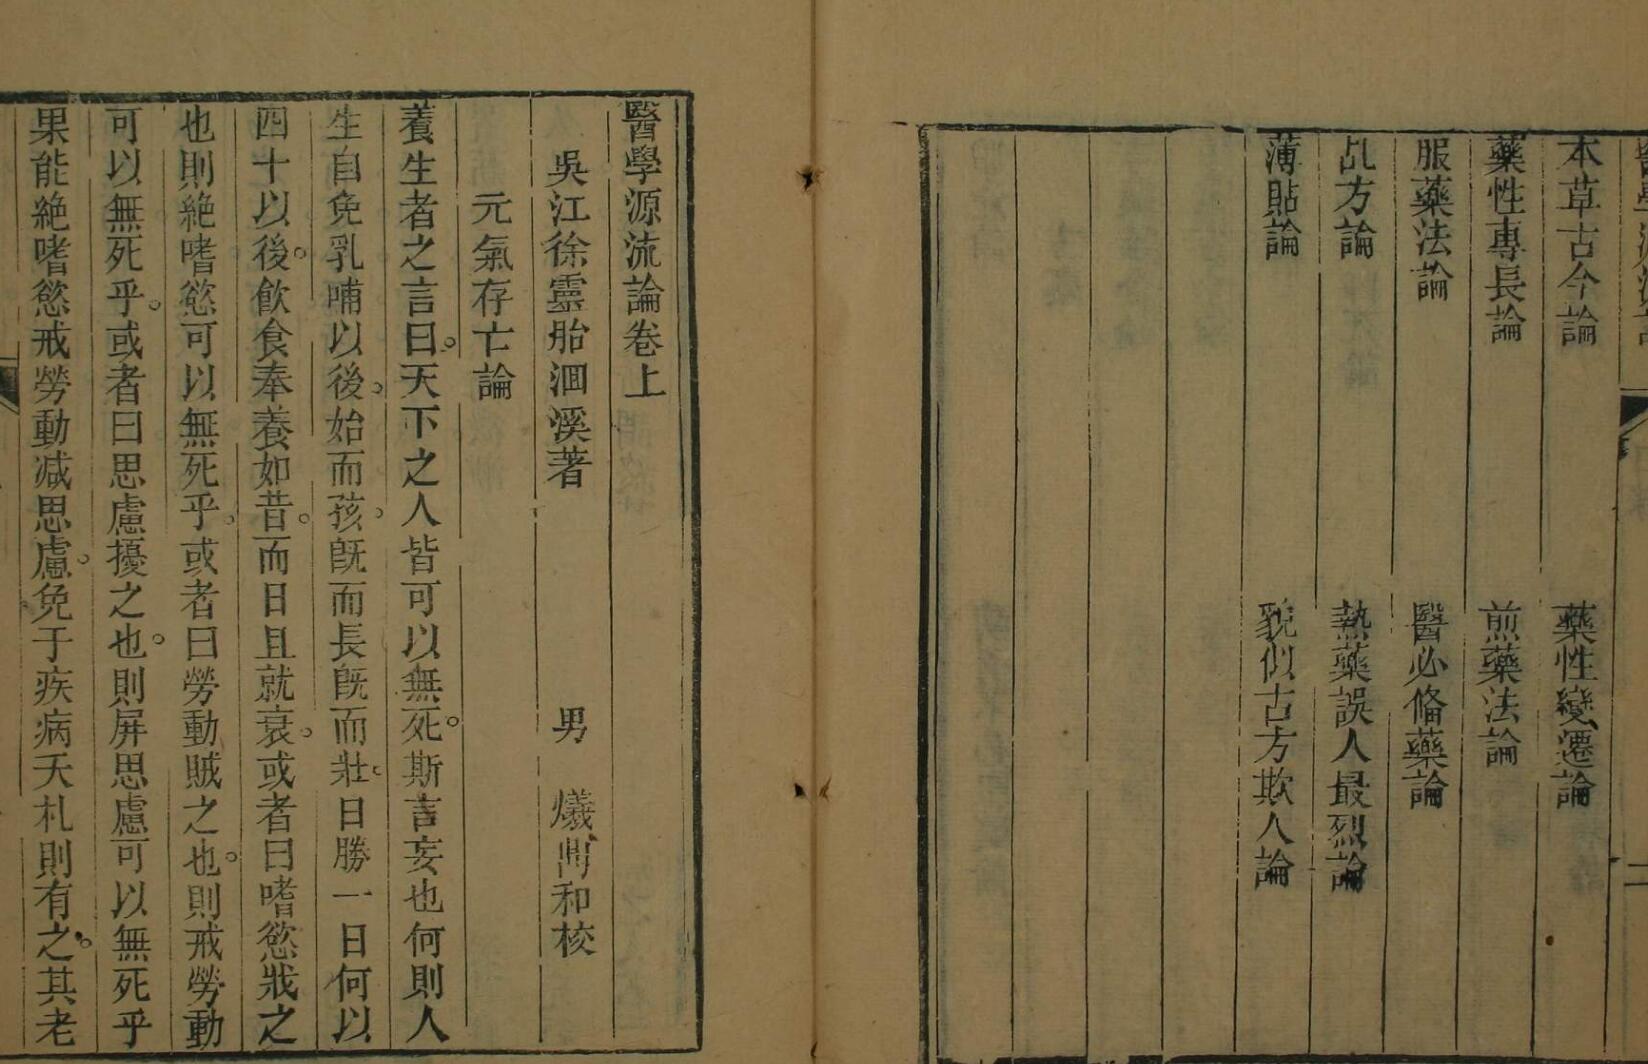 本草古今論　藥性變遷論
藥性專長論　煎藥法論
服藥法論　醫必脩藥論
乩方論　熱藥誤人最烈論
薄貼論　貌似古方欺人論
醫學源流論卷上
吳江徐靈胎洄溪著　男　爔鼎和校
元氣存亡論
養生者之言曰。天下之人皆可以無死。斯言妄也何則人
生自免乳哺以後。始而孩。旣而長旣而壯。日勝一日何以
四十以後。飮食奉養如昔。而日且就衰。或者曰嗜慾戕之
也則絶嗜慾可以無死乎。或者曰勞動賊之也。則戒勞動
可以無死乎。或者曰思慮擾之也。則屏思慮可以無死乎
果能絶嗜慾戒勞動减思慮。免于疾病天札則有之。其老